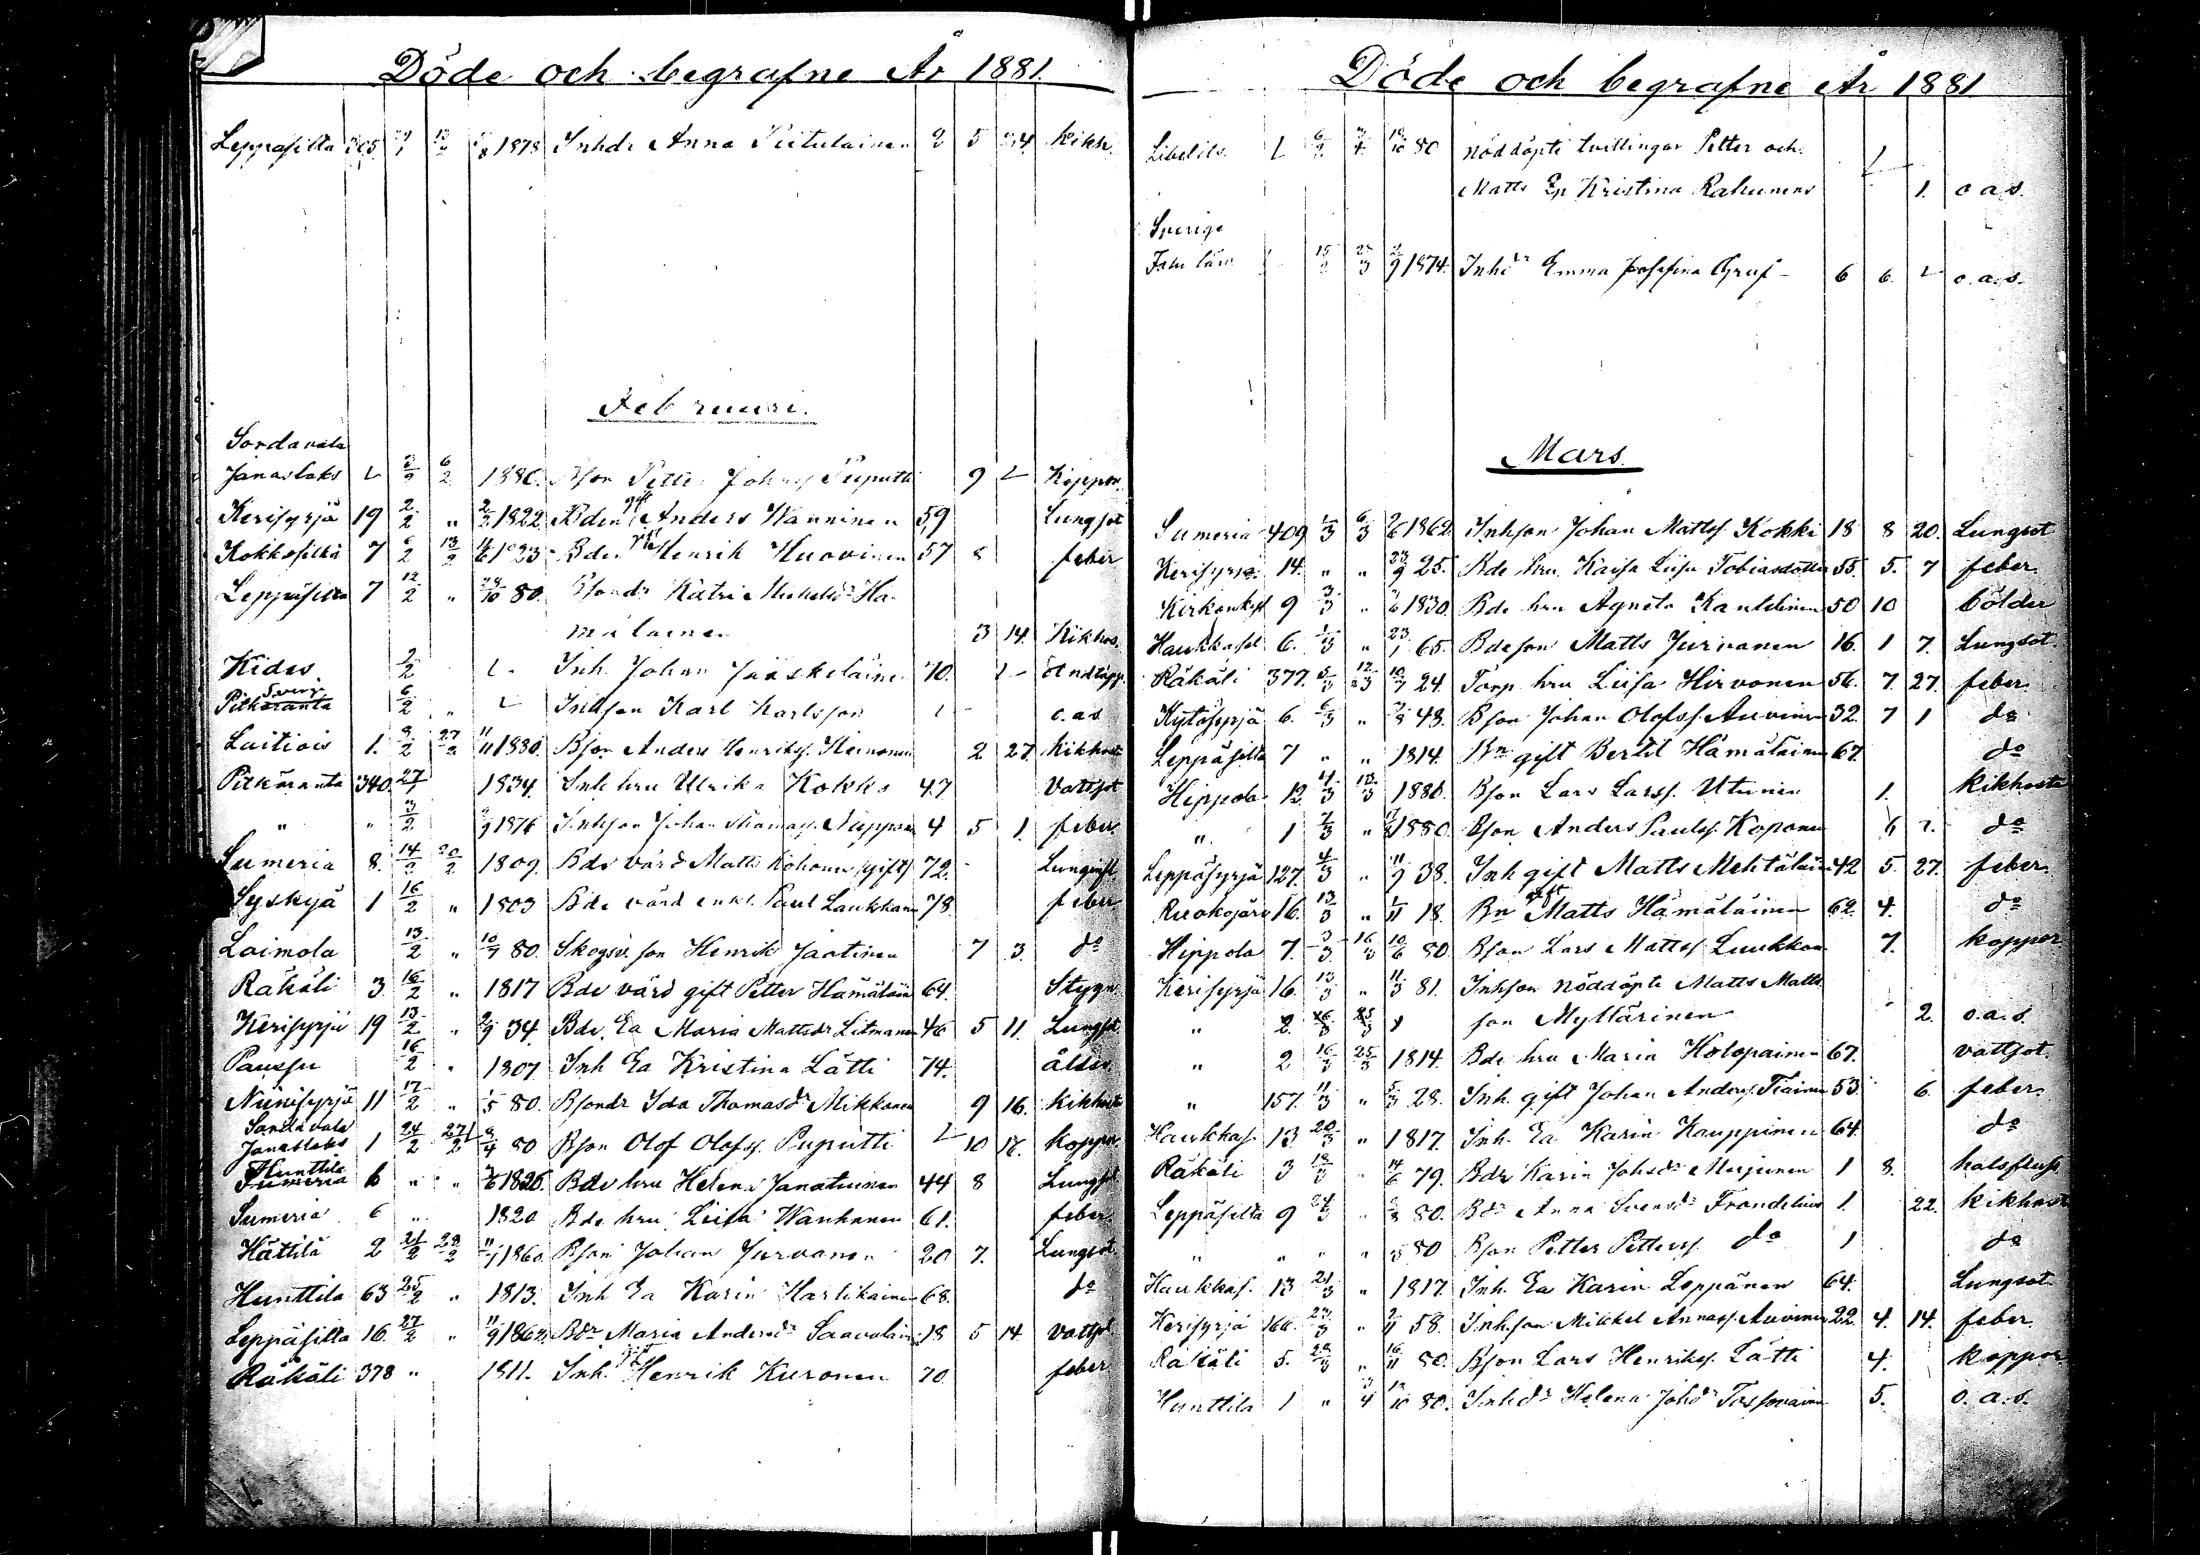 Döde och begrafne År 1881.
Leppäsilta 1878 Inhdr Anna Piitulainen 2 5 24 kikh.
Februari.
Sordavala
Janaslaks 2/2 6/2 1880. Bson Petter Johans. Puputti 9 Koppor
Kerisyrjä 19 2/2 " 2/2 1822 Bden gift Anders Wanninen 59 Lungsot
Kokkoselkä 7 13/2 Bden gift Henrik Huovinen 57 8 feber
Leppäsilta 7 12/2 " 28/10 80. Bsondr Katri Mickelsdr Hä-
mäläinen 3 14. Kikhos.
Kides 2/2 Inh. Johan Jääskeläinen 70.
Sverg.
Pitkäranta 6/2 " Inhson Karl Karlsson o.a.s
Laitiois 1. 27/2 11/11 1880. Bson Anders Henriks. Heinonen 2 27. kikhosta
Pitkäranta 340. 27/1 1834. Inh hru Ulrika Kokko 47 Vattsot
" " 3/2 1876 Inhson Johan Thomas. Nupponen 4 5 1. feber
Sumeria 8. 14/2 20/2 1809. Bde värd Matts Kohonen (gift) 72. Lunginfl.
Syskyä 1 16/2 " 1803 Bde värd enkl. Paul Laukkanen 78. feber
Loimola 13/2 " 10/7 80. Skogsv. son Henrik Jaatinen 7 3. do
Räkäli 3 16/2 " 1817 Bde värd gift Petter Hämäläin 64. Stygn
Kerisyrjä 19 13/2 " 2/9 34. Bde. Ea Maria Mattsdr Litmanen 46 5 11. Lungsot
Paussu 16/2 " 1807. Inh Ea Kristina Lätti 74. ålder
Niinisyrjä 11 17/2 " 1/5 80. Bsondr Ida Thomasdr Mikkonen 9 16. kikhosta
Sordavala
Janaslaks 1 24/2 27/2 8/4 80 Bson Olof Olofs. Puputti 10 16. koppor
Hunttila
Sumeria 6 " " 1826. Bde hru Helena Janatuinen 44 8 Lungsot
Sumeria 6 " 1820 Bde hru Liisa Wanhanen 61. feber.
Hättilä 2 21/2 28/2 11/7 1860 Bson Johan Jurvanen 20 7. Lungsot
Hunttila 63 25/2 " 1813. Inh Ea Karin Harlikainen 68. do
Leppäsilta 16. 27/2 " 11/9 1862. Bdr Maria Andersdr Saavalain 18 5 14. Vattsot
Räkäli 378 " 1811. Inh. gift Henrik Kuronen 70. feber
Döde och begrafne År 1881
Libelits 6/2 18/10 80 nöddöpte tvillingar Petter och
Matts Ep Kristina Rahunens 1. o a s.
Sverige
Falu län 15/2 2/9 1874. Inhdr Emma Josefina Graf 6 6. o. a. s.
Mars.
Sumeria 409 1/3 6/3 1862. Inhson Johan Matts. Kokki 18 8 20. Lungsot
Kerisyrjä. 14. " " 23/9 25. Bde hru. Kaisa Liisa Tobiasdotter 55. 5. 7 feber.
9 3/3 " 1830. Bde hru Agneta Kantelinen 50 10 bölder
Haukkasel 6. 1/3 " 23/1 65. Bdeson Matts Jurvanen 16. 1 7. Lungsot.
Räkäli 377. 5/3 12/3 10/7 24. Torp. hru Liisa Hirvonen 56. 7. 27. feber.
Kytösyrjä 6. 6/3 " 48. Bson Johan Olofss. Auvinen 32. 7 1 do
Leppäsilta 7 " " 1814. Bn gift Bertil Hämäläinen 67. do
Hippola 12. 13/3 1880. Bson Lars Larss. Utunen 1. kikhosta
" 1 7/3 " 1880. Bson Anders Pauls. Koponen do
Leppäsyrjä 127. 4/3 " 11/9 38. Inh gift Matts Mehtäläin 42 5. 27. feber.
Ruokojärv 16. 13/3 " 1/11 18. Bn gift Matts Hämäläinen 62. 4. do
Hippola 7. 3/3 16/3 10/6 80. Bson Lars Mattss. Luukkon 7. koppor
Kerisyrjä 16. 13/3 " 11/3 81. Inhson nöddöpte Matts Matts
" 2. 25/3 son Myllärinen 2. o. a. s.
" 2 16/3 25/3 1814. Bde hru Maria Holopainen 67. vattsot.
" 157. 11/3 " 5/3 28. Inh. gift Johan Anders. Tiainen 53 6. feber.
Haukkas. 13 20/3 " 1817. Inh. Ea Karin Kauppinen 64. do
Räkäli 3 18/3 " 14/6 79. Bdr Karin Johsdr Mujunen 1 8. halsfluss
Leppäsilta 9 24/3 " 80. Bdr Anna Svensdr Frondelius 1. 22. kikhost
" " " " 80 Bson Petter Petters. do 1 do
Haukkas. 13 21/3 " 1817. Inh. Ea Karin Leppänen 64. Lungsot
Kerisyrjä 166. 23/3 " 2/11 58. Inh.son Mikkel Annas. Auvinen 22. 4. 14. feber
Räkäli 5. 28/3 " 16/11 80. Bson Lars Henriks. Lätti 4. koppor
Hunttila 1 " 3/4 80. Inhdr Helena Johdr Tossavainen 5. o. a. s.